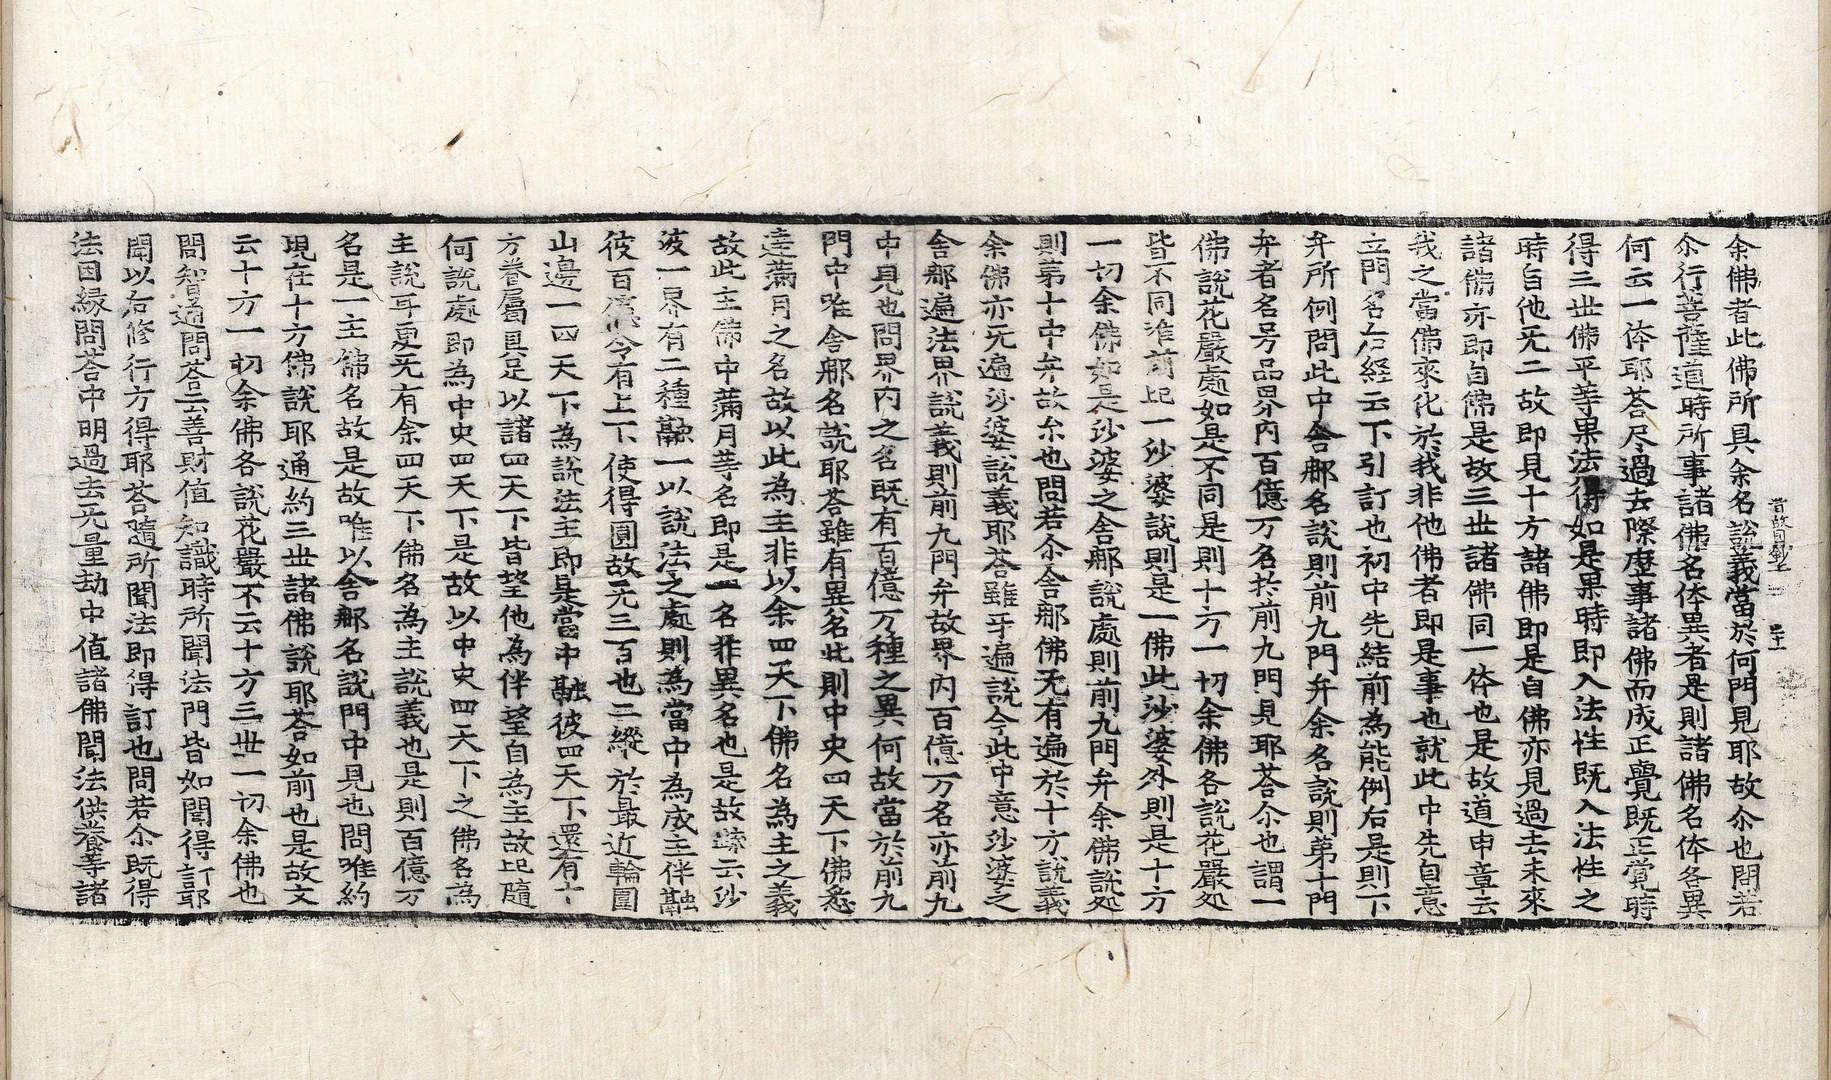 余佛者此佛所具余名說義當於何門見耶故尒也問若
尒行菩薩道時所事諸佛名体異者是則諸佛名体各異
何云一体耶荅尽過去際歷事諸佛而成正覺旣正覺時
得三世佛平等果法得如是果時即入法性旣入法性之
時自他无二故即見十方諸佛即是自佛亦見過去未來
諸佛亦即自佛是故三世諸佛同一体也是故道申章云
我之當佛來化於我非他佛者即是事也就此中先自意
立門名后經云下引訂也初中先結前為能例右是則下
弁所例問此中舍那名說則前九門弁余名說則苐十門
弁者名号品界內百億万名扵前九門見耶荅尒也謂一
佛說花嚴處如是不同是則十方一切余佛各說花嚴処
皆不同准前此一沙婆說則是一佛此沙婆外則是十方
一切余佛如是沙婆之舍那說處則前九門弁余佛說処
則苐十中弁故尒也問若尒舍那佛无有遍於十方說義
余佛亦无遍沙婆說義耶荅雖乎遍說今此中意沙婆之
舍那遍法界說義則前九門弁故界內百億万名亦前九
中見也問界內之名旣有百億万種之異何故當於前九
門中唯舍那名說耶荅雖有異名此則中央四天下佛悉
達滿月之名故以此為主非以余四天下佛名為主之義
故此主佛中滿月等名即是一名非異名也是故䟽云沙
婆一界有二種融一以說法之處則為當中為成主伴融
彼百億令有上下使得圓故无三百也二縱於最近輪圍
山邊一四天下為說法主即是當中融彼四天下還有十
方眷屬具足以諸四天下皆望他為伴望自為主故此隨
何說處即為中央四天下是故以中央四天下之佛名為
主說耳更无有余四天下佛名為主說義也是則百億万
名是一主佛名故是故唯以舍那名說門中見也問唯約
現在十方佛說耶通約三世諸佛說耶荅如前也是故文
云十方一切余佛各說花嚴不云十方三世一切余佛也
問智通問荅云善財值知識時所聞法門皆如聞得訂耶
聞以后修行方得耶荅隨所聞法即得訂也問若尒旣得
法因緣問荅中明過去无量劫中值諸佛聞法供養等諸